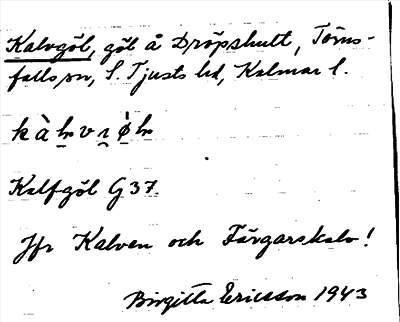 Kalvgöl, göl å Dröpshult, Törns-
falls sn, S. Tjusts hd, Kalmar l.
Kalfgöl G37.
Jfr Kalven och Färgarskalv!
Birgitta Ericsson 1943